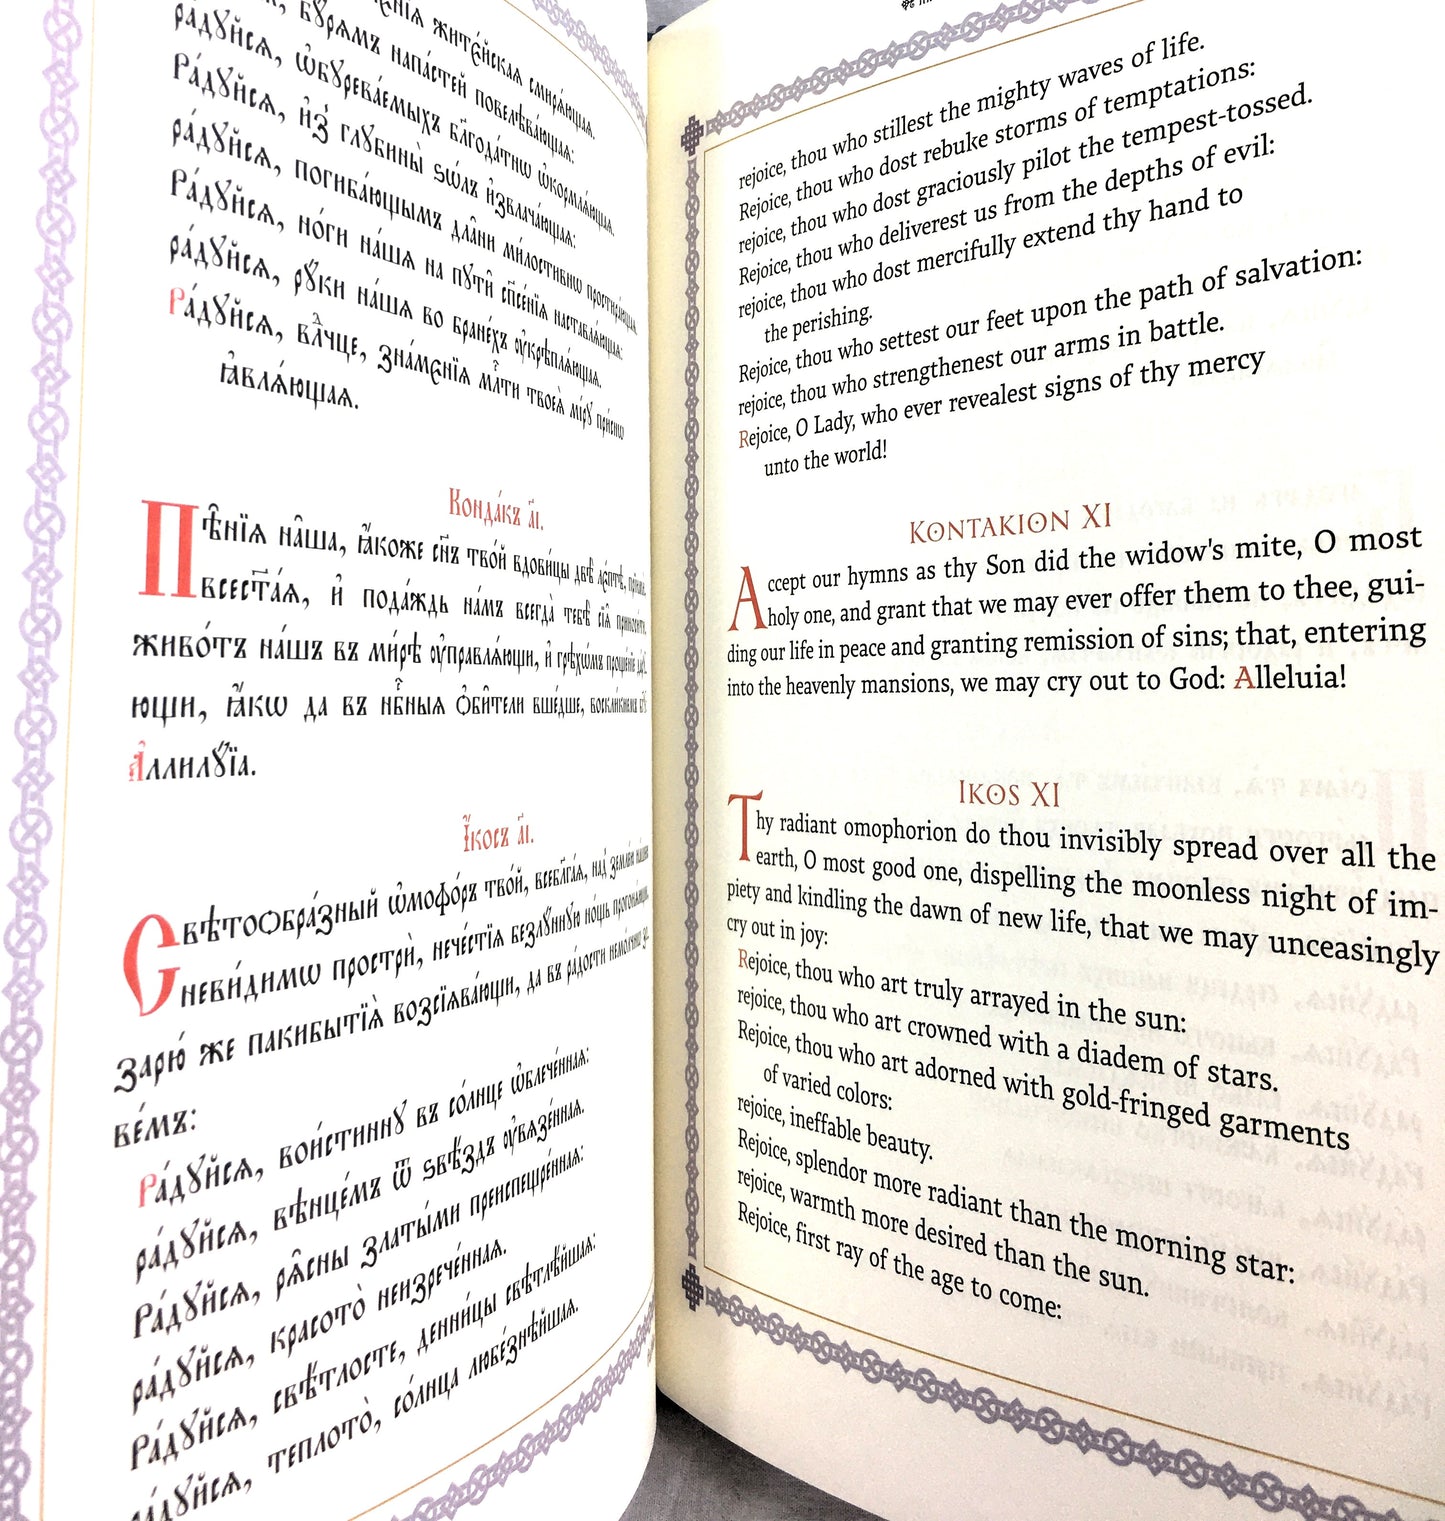 жите́йская смирѧ́ющая.
бꙋ́рѧмъ напа́стей повелѣва́ющаѧ:
ра́дꙋйсѧ, ѡ҆бꙋрева́емыхъ бл҃года́тнѡ ѡ҆кормлѧ́ющаѧ.
Ра́дꙋйсѧ, и҆з̾ глꙋбины̀ ѕѡ́лъ и҆звлача́ющаѧ:
ра́дꙋйсѧ, погиба́ющымъ дла̑ни ми́лостивнѡ простира́ющаѧ.
Ра́дꙋйсѧ, но́ги на́шѧ на пꙋти̑ сп҃се́нїѧ наставлѧ́ющаѧ:
ра́дꙋйсѧ, рꙋ́ки на́шѧ во бране́хъ ᲂу҆крѣплѧ́ющаѧ.
Ра́дꙋйсѧ, влⷣчце, зна́мєнїѧ млⷭ҇ти твоеѧ̀ мі́рꙋ при́снѡ
ꙗ҆влѧ́ющаѧ.
Конда́къ а҃і.
Пѣ̑нїѧ на̑ша, ꙗ҆́коже сн҃ъ тво́й вдови́цы двѣ̀ лє́птѣ, прїимѝ,
всест҃а́ѧ, и҆ пода́ждь на́мъ всегда̀ тебѣ̀ сїѧ̑ приноси́ти,
живо́тъ на́шъ въ ми́рѣ ᲂу҆правлѧ́ющи, и҆ грѣхѡ́мъ проще́нїе даю́-
ющи, ꙗ҆́кѡ да въ нбⷭ҇ныѧ ѻ҆би́тели вше́дше, воскли́кнемъ бг҃ꙋ:
А҆ллилꙋ́їа.
І҆́косъ а҃і.
Свѣтоѻбра́зный ѡ҆мофо́ръ тво́й, всебл҃га́ѧ, над̾ земле́ю на́шею
неви́димѡ прострѝ, нече́стїѧ безлꙋ́ннꙋю но́щь прогонѧ́ющи,
зарю́ же пакибытїѧ̀ возсїѧва́ющи, да въ ра́дости немо́лчнѡ зо-
ве́мъ:
Ра́дꙋйсѧ, вои́стиннꙋ въ со́лнце ѡ҆блече́ннаѧ:
ра́дꙋйсѧ, вѣнце́мъ ѿ ѕвѣ́здъ ᲂу҆вѧзе́ннаѧ.
Ра́дꙋйсѧ, рѧ̑сны златы́ми преиспещре́ннаѧ:
ра́дꙋйсѧ, красото̀ неизрече́ннаѧ.
Ра́дꙋйсѧ, свѣ́тлосте, денни́цы свѣтлѣ́йшаѧ:
ра́дꙋйсѧ, теплото̀, со́лнца любе́знѣйшаѧ.
rejoice, thou who stillest the mighty waves of life.
Rejoice, thou who dost rebuke storms of temptations:
rejoice, thou who dost graciously pilot the tempest-tossed.
Rejoice, thou who deliverest us from the depths of evil:
rejoice, thou who dost mercifully extend thy hand to
the perishing.
Rejoice, thou who settest our feet upon the path of salvation:
rejoice, thou who strengthenest our arms in battle.
Rejoice, O Lady, who ever revealest signs of thy mercy
unto the world!
Kontakion XI
Accept our hymns as thy Son did the widow's mite, O most
holy one, and grant that we may ever offer them to thee, gui-
ding our life in peace and granting remission of sins; that, entering
into the heavenly mansions, we may cry out to God: Alleluia!
Ikos XI
Thy radiant omophorion do thou invisibly spread over all the
earth, O most good one, dispelling the moonless night of im-
piety and kindling the dawn of new life, that we may unceasingly
cry out in joy:
Rejoice, thou who art truly arrayed in the sun:
rejoice, thou who art crowned with a diadem of stars.
Rejoice, thou who art adorned with gold-fringed garments
of varied colors:
rejoice, ineffable beauty.
Rejoice, splendor more radiant than the morning star:
rejoice, warmth more desired than the sun.
Rejoice, first ray of the age to come: